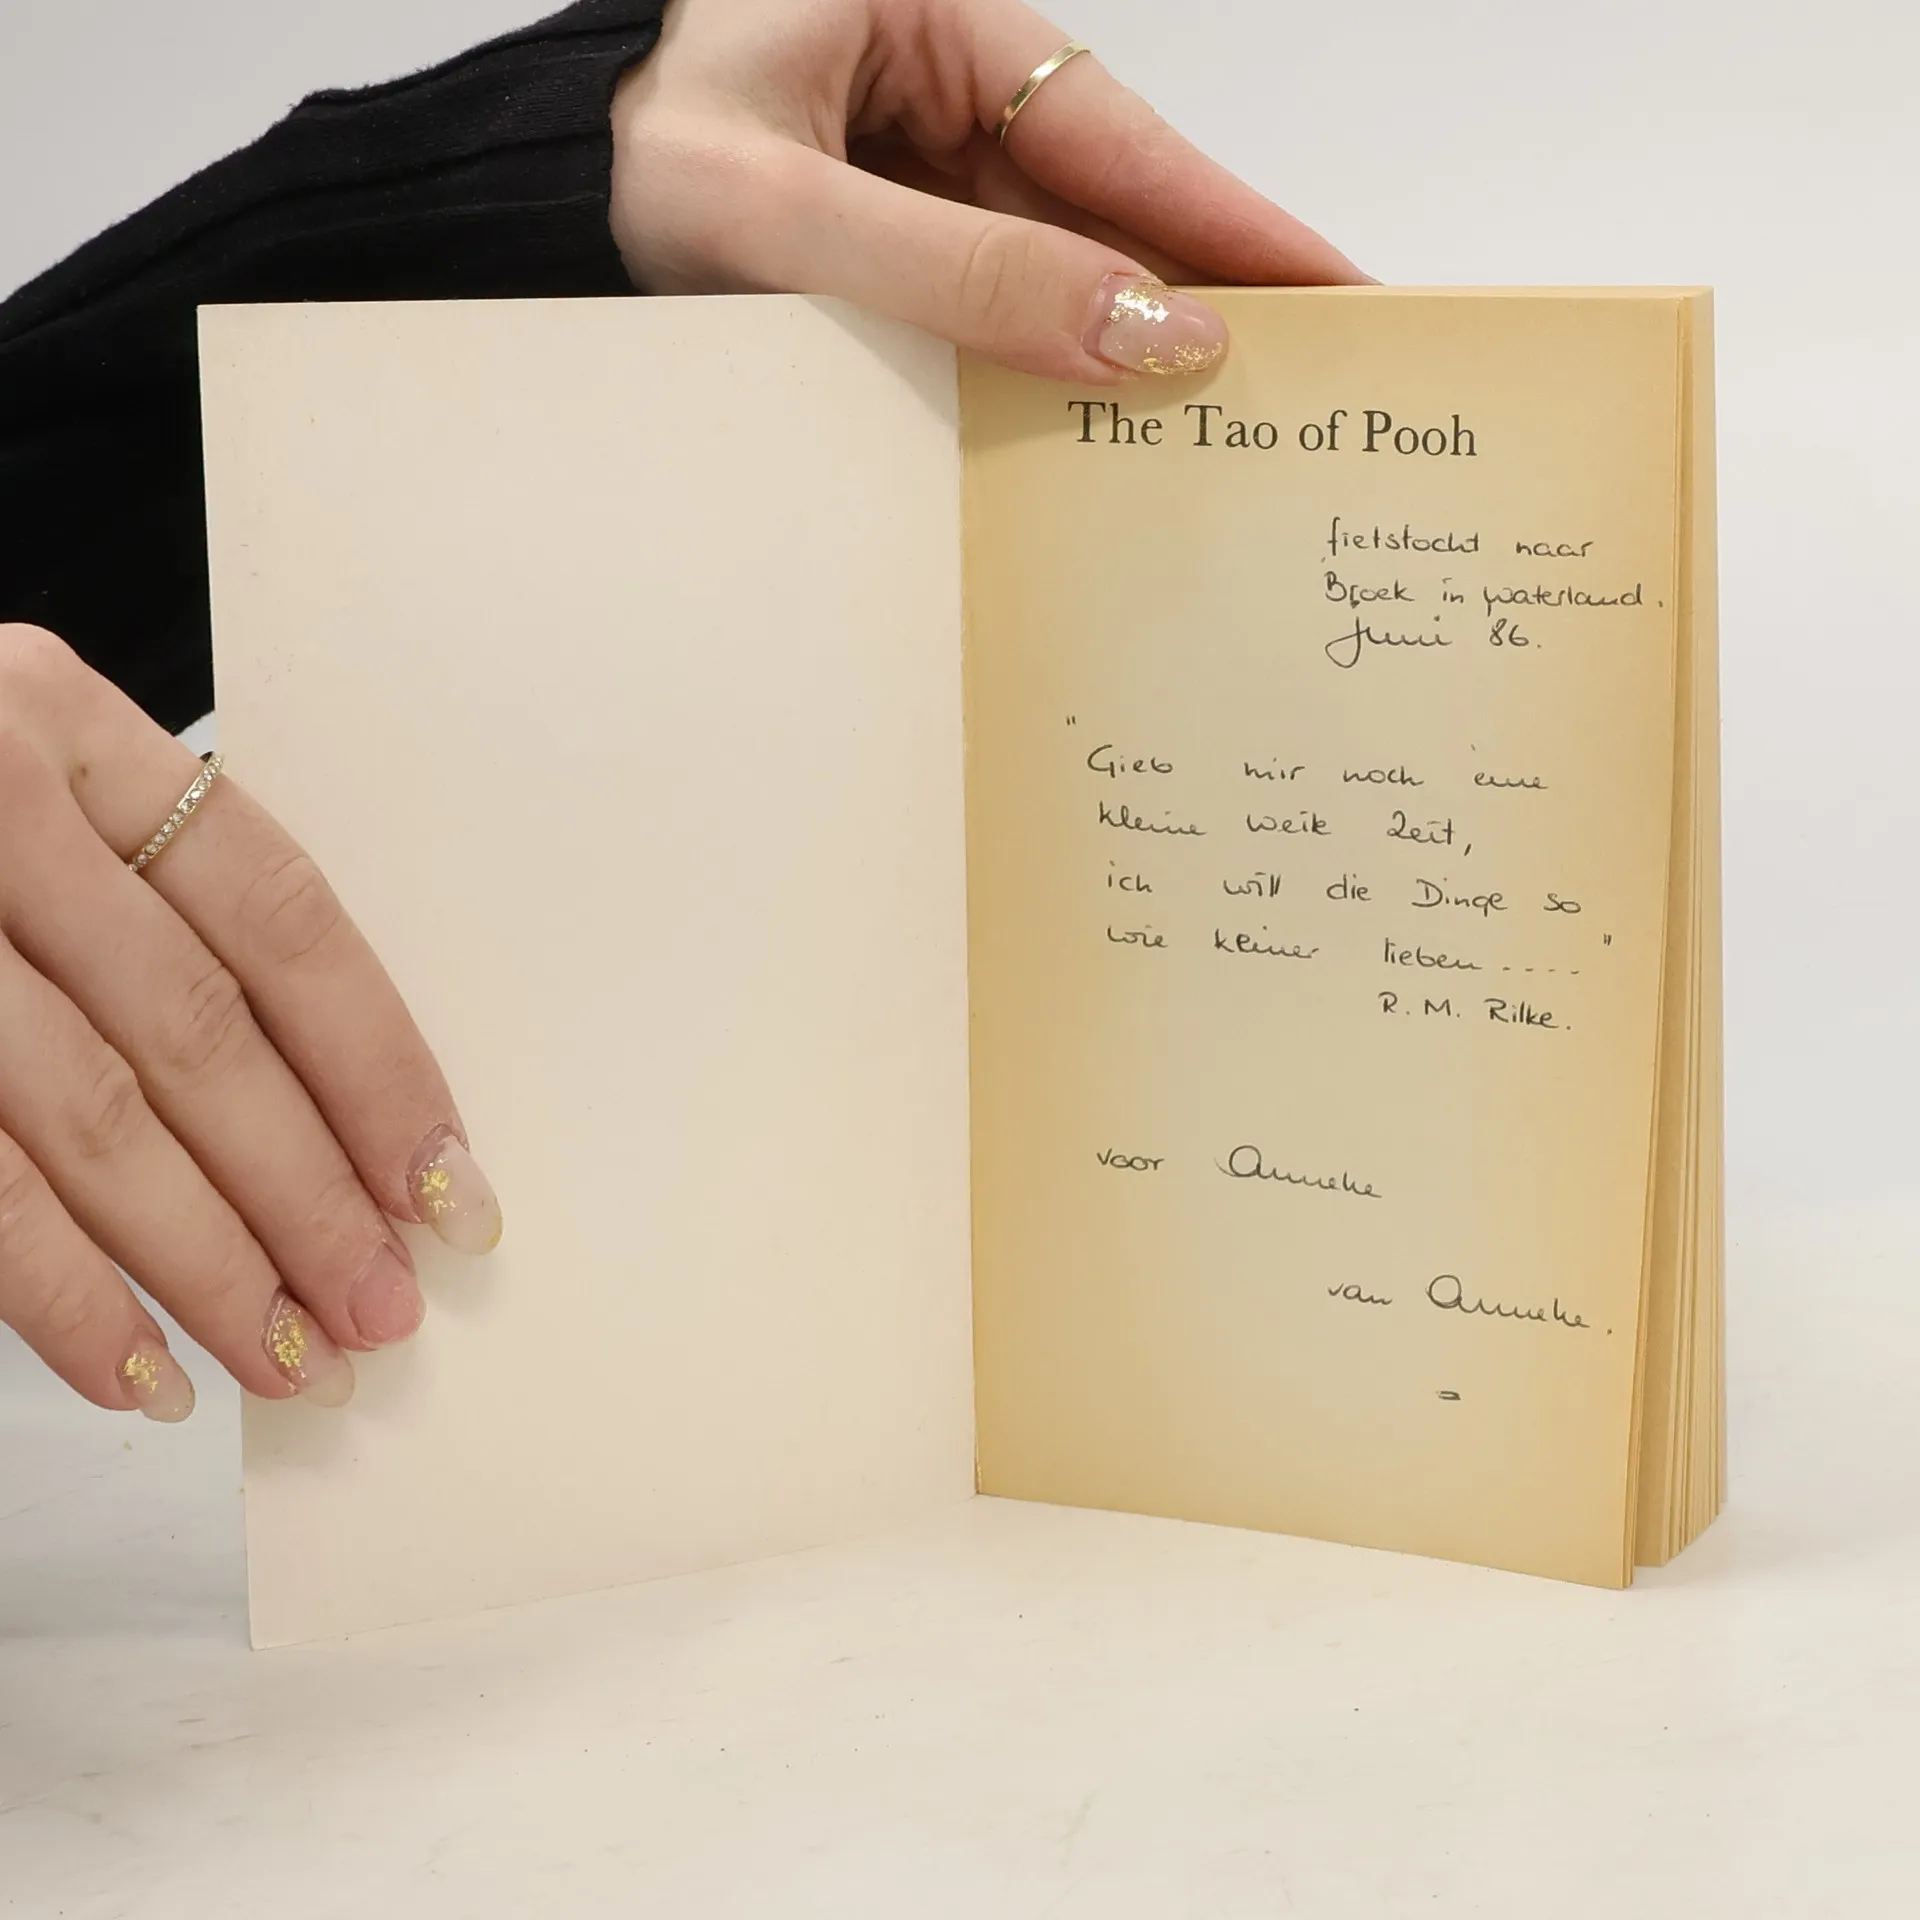 The Tao of Pooh
fietstocht naar
Broek in waterland.
Juni 86.
"Gieb mir noch eine
kleine weile Zeit,
ich will die Dinge so
wie keiner lieben...."
R. M. Rilke.
voor Anneke
van Anneke.